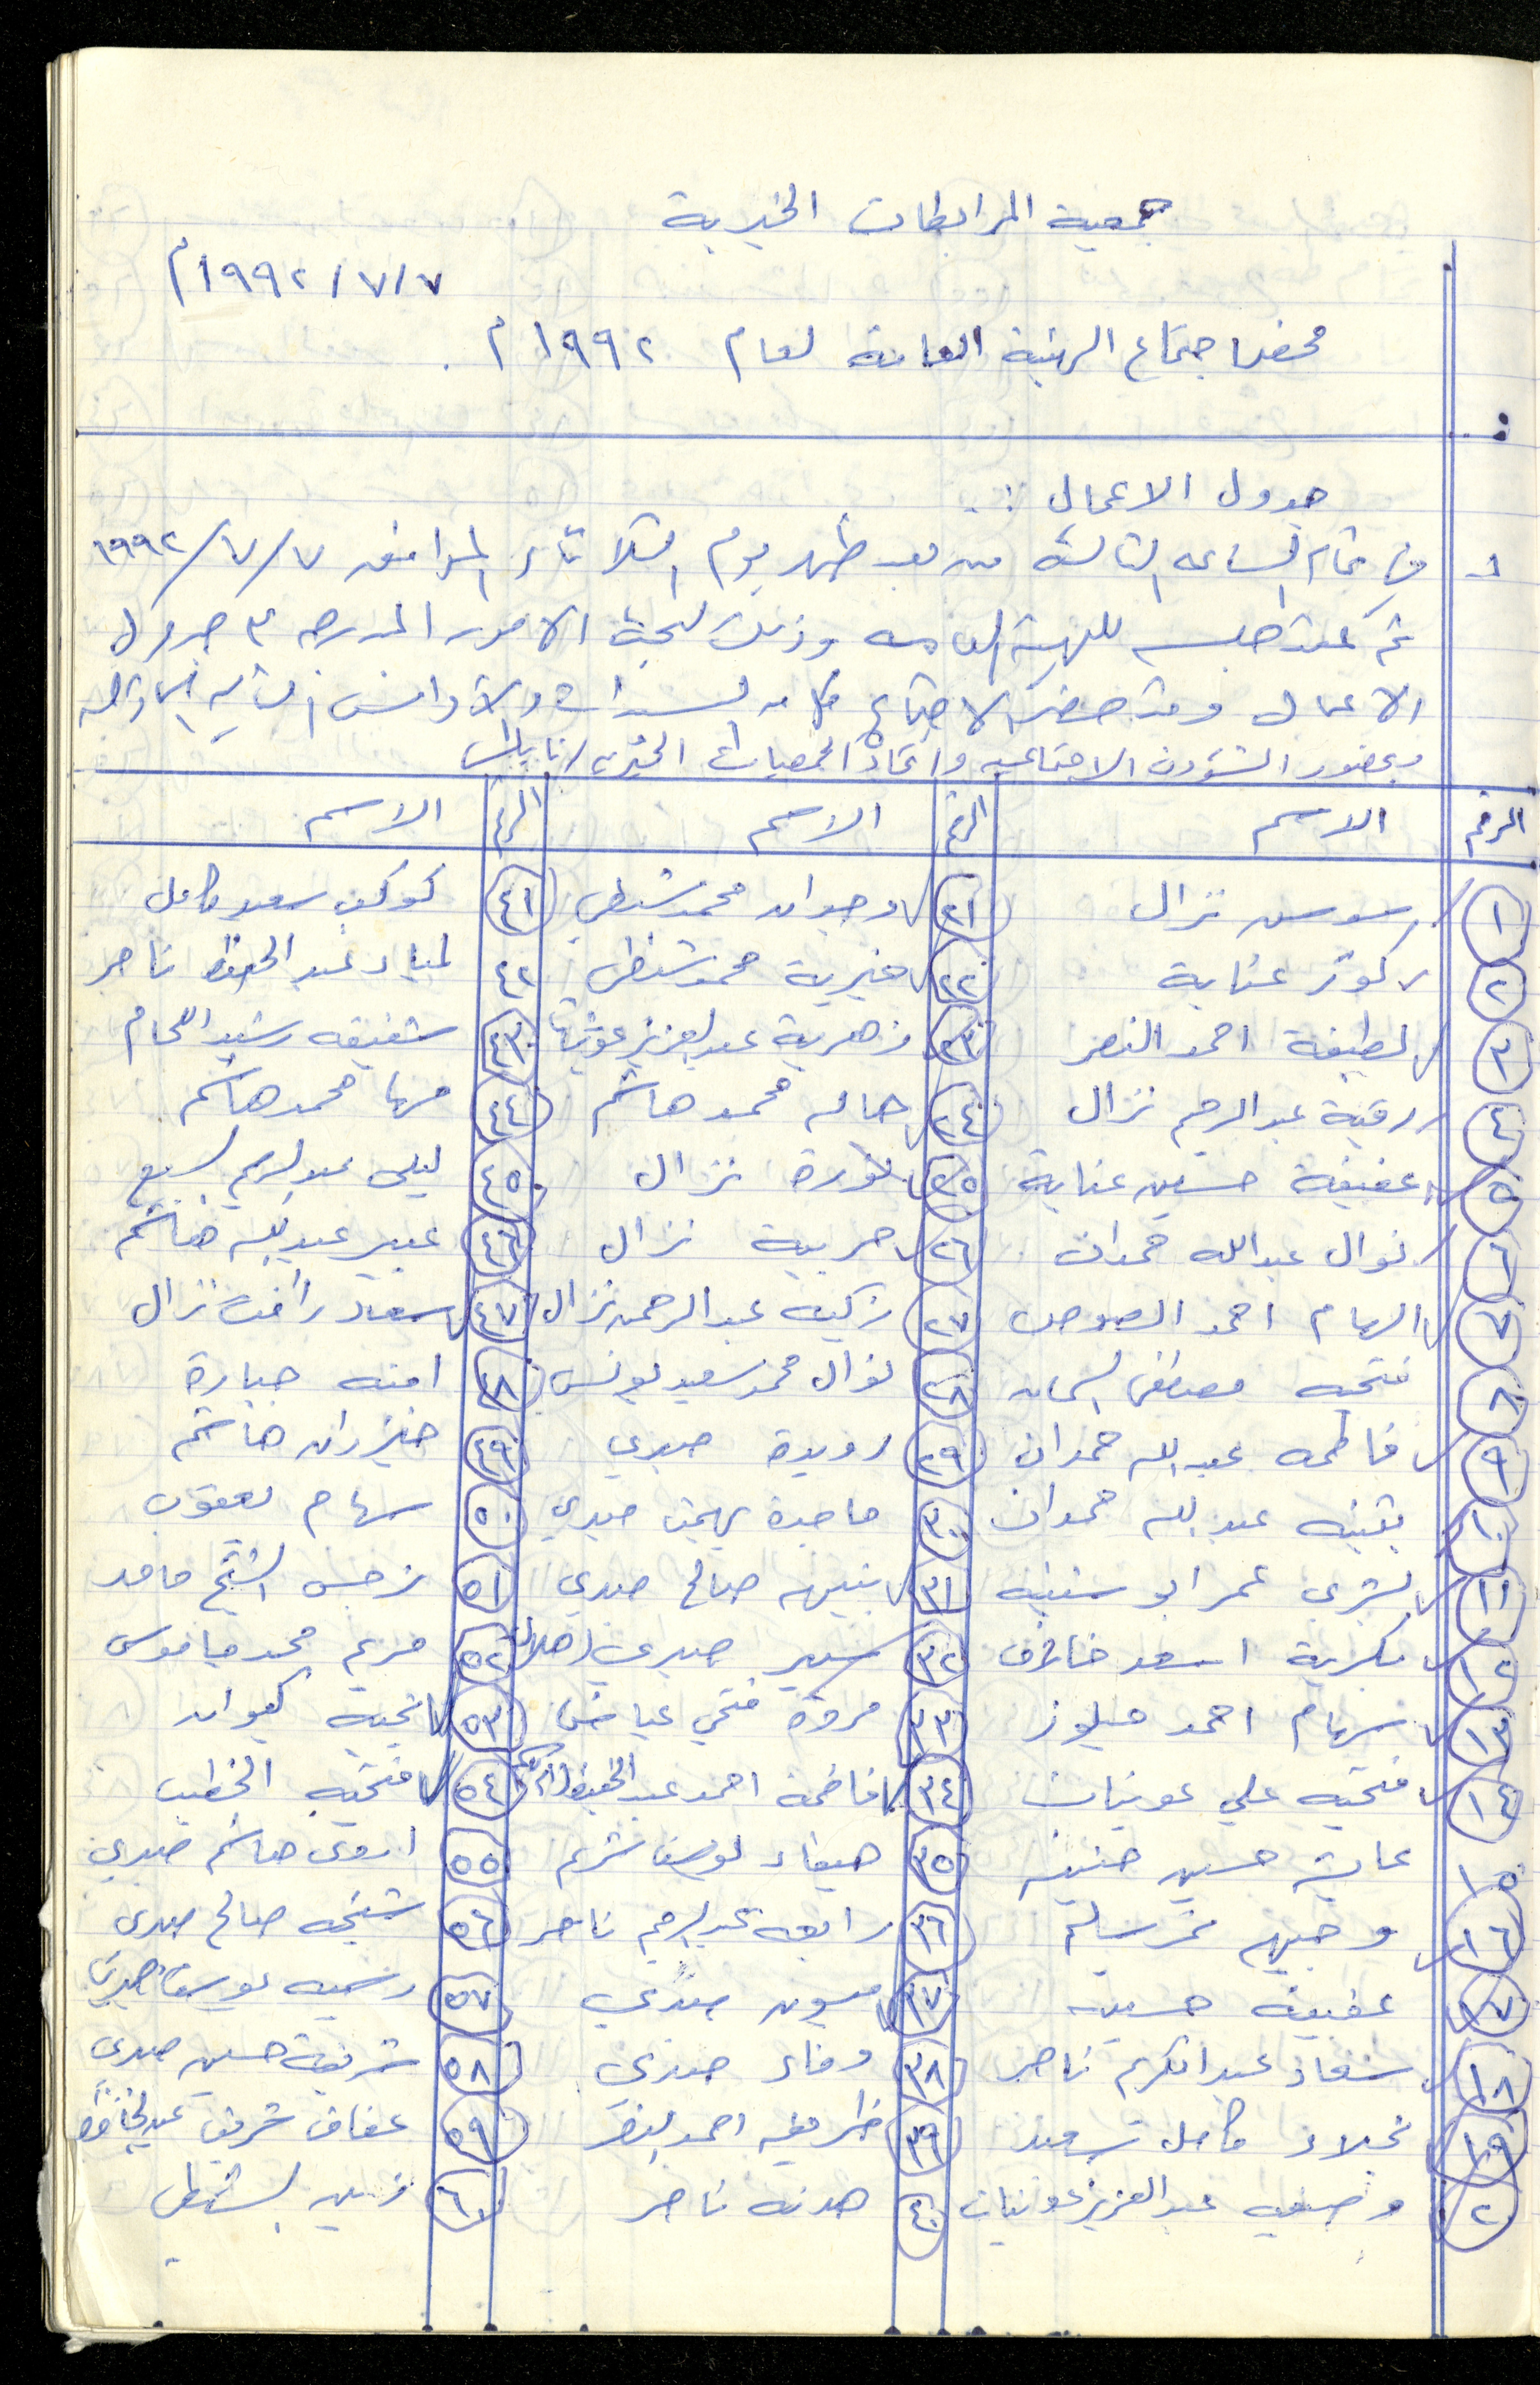 جمعية المرابطات الخيرية
١٩٩٢/٧/٧م
محضر اجتماع الهيئة العامة لعام ١٩٩٢م.
جدول الاعمال :
في تمام الساعه الثالثة من بعد ظهر يوم الثلاثاء الموافق ١٩٩٢/٧/٧
تم عقد جلسه للهيئة العامه وذلك لبحث الامور المدرجه في جدول
الاعمال وقد حضر الاجتماع كل من السيدات والاوانس التاليه
وبحضور الشؤون الاجتماعيه واتحاد الجمعيات الخيريه / نابلس
الرقم الاسم الرقم الاسم الرقم الاسم
١ سوسن نزال ٢١ وجدان محمد شنطي ٤١ كوكب سعيد كامل
٢ كوثر عناية ٢٢ خيرية محمد شنطي ٤٢ لمياء عبد الحفيظ ناصر
٣ لطيفة احمد النصر ٢٣ زهرية عبد العزيز عوينات ٤٣ شفيقه رشيد اللحام
٤ رقية عبد الرحيم نزال ٢٤ هاله محمد هاشم ٤٤ مها محمد هاشم
٥ عفيفة حسين عناية ٢٥ نورة نزال ٤٥ ليلى عبد الكريم السبع
٦ نوال عبدالله حمدان ٢٦ حربية نزال ٤٦ عبير عبد الله هاشم
٧ الهام احمد الصوص ٢٧ زكيه عبد الرحمن نزال ٤٧ سعاد رأفت نزال
٨ فتحيه مصطفى السمان ٢٨ نوال محمد سعيد يونس ٤٨ امنه جبارة
٩ فاطمه عبد الله حمدان ٢٩ رويدة صبري ٤٩ خيزران هاشم
١٠ بثينه عبد الله حمدان ٣٠ ماجدة بهجت صبري ٥٠ سهام يعقوب
١١ بشرى عمر ابو سنينه ٣١ نبيهه صالح صبري ٥١ نرجس الشيخ حامد
١٢ فكرية اسعد خلاف ٣٢ سمير صبري (هلال) ٥٢ مريم محمد جاموس
١٣ سهام احمد ٣٣ مروة فتحي عياش ٥٣ تحيه كيوان
١٤ فتحيه علي عوينات ٣٤ فاطمة احمد عبد الحفيظ ٥٤ فتحيه الخطيب
١٥ عايشه حسين حنينه ٣٥ هيفاء يوسف شريم ٥٥ اروى هاشم صبري
١٦ وجيهه نمر سليم ٣٦ رابعه عبد الرحيم ناصر ٥٦ شيخه صالح صبري
١٧ عفيفه حسين ٣٧ ميسون صبري ٥٧ رسميه يوسف صبري
١٨ سعاد عبد الكريم ناصر ٣٨ وفاء صبري ٥٨ شريفة حسين صبري
١٩ نجلاء كامل سعيد ٣٩ ظريفه احمد النصر ٥٩ عفاف شريف عبد الحافظ
٢٠ وصفيه عبد العزيز عوينات ٤٠ هدنه ناصر ٦٠ زين الشنطي